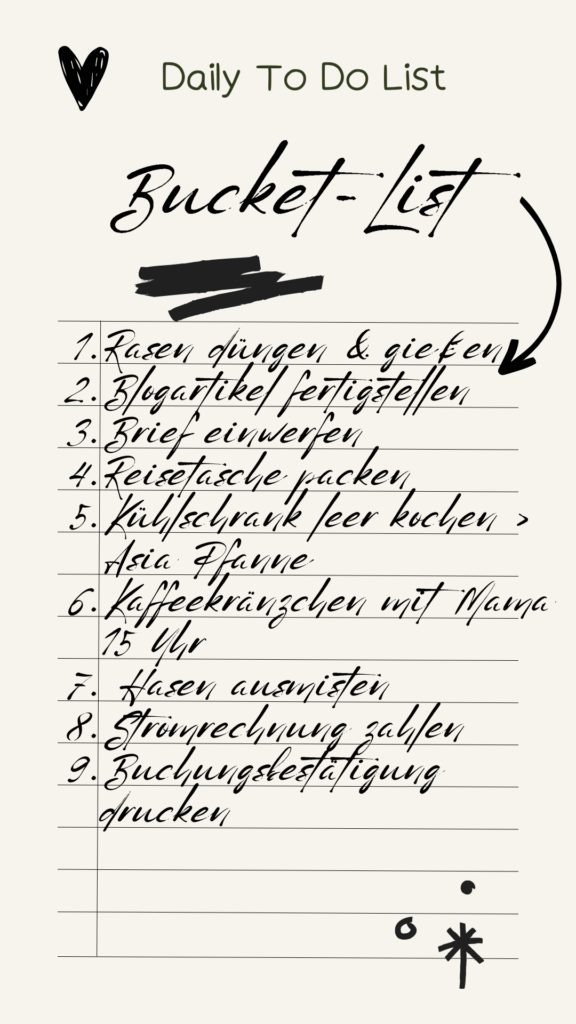 Daily To Do List
Bucket-List
1. Rasen düngen & gießen
2. Blogartikel fertigstellen
3. Brief einwerfen
4. Reisetasche packen
5. Kühlschrank leer kochen >
Asia Pfanne
6. Kaffeekränzchen mit Mama
15 Uhr
7. Hasen ausmisten
8. Stromrechnung zahlen
9. Buchungsbestätigung
drucken